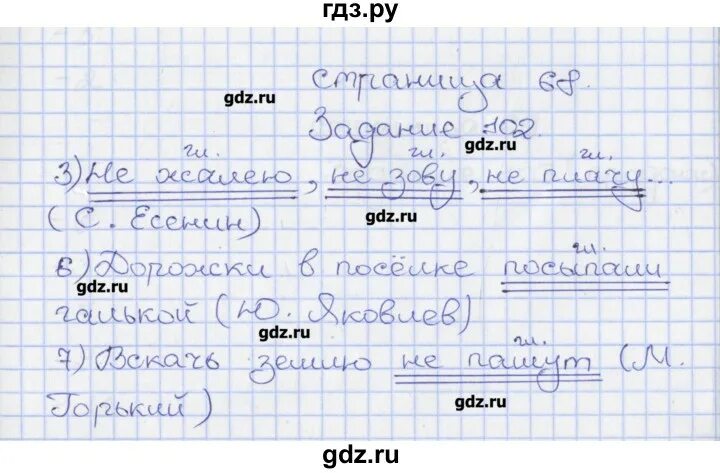 гдз.ру
страница 68.
gdz.ru
Задание 102.
gdz.ru
гл. гл. гл.
3) Не жалею, не зову, не плачу...
(С. Есенин)
gdz.ru
гл.
6) Дорожки в посёлке посыпали
gdz.ru
галькой (Ю. Яковлев)
gdz.ru
гл.
7) Вскачь землю не пашут (М.
Горький)
gdz.ru
gdz.ru